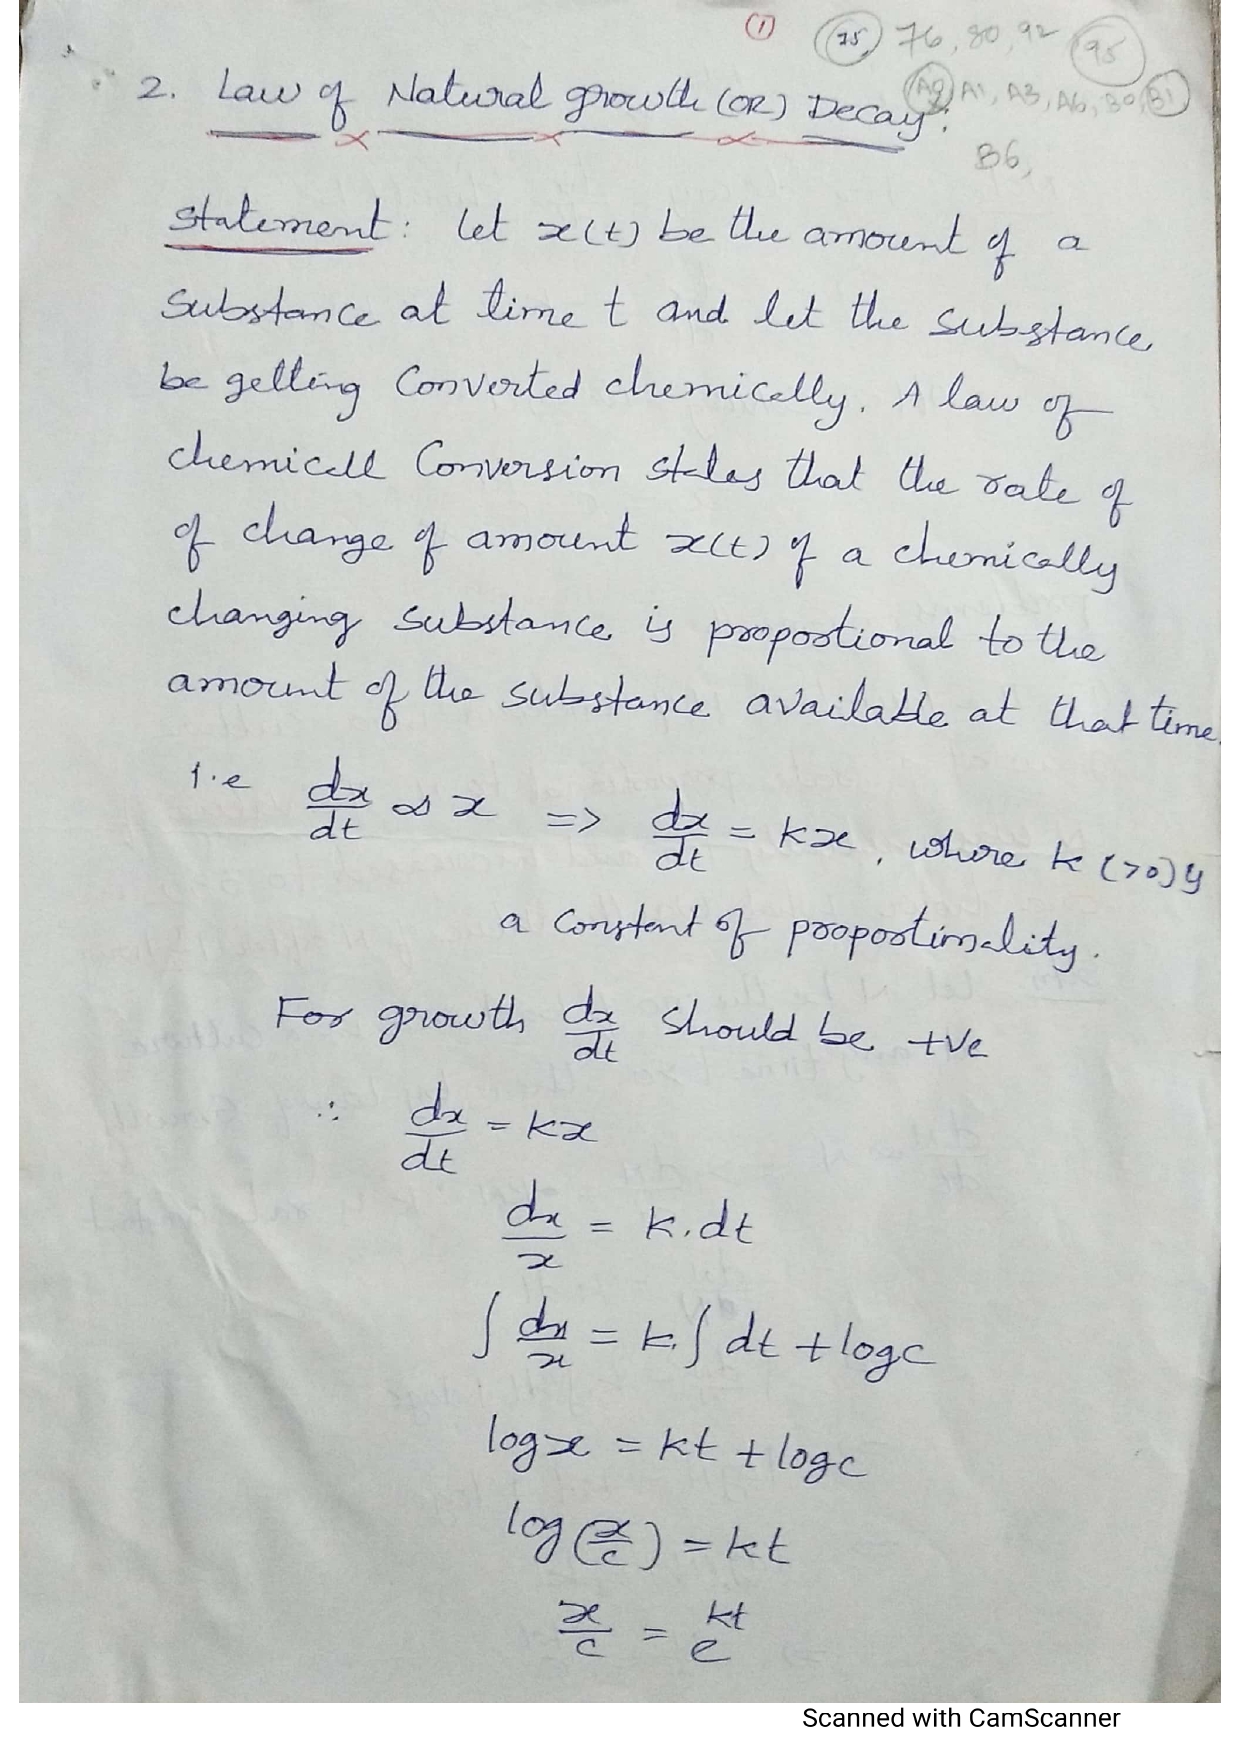 (1) (75) 76, 80, 92 (95)
2. Law of Natural growth (OR) Decay:
(A0) A1, A3, A6, B0, (B1)
B6,
Statement: Let x(t) be the amount of a
Substance at time t and let the substance
be getting Converted chemically. A law of
chemicall Conversion states that the rate of
of change of amount x(t) of a chemically
changing substance is proportional to the
amount of the substance available at that time.
i.e dx/dt ∝ x => dx/dt = kx, where k (>0) is
a Constant of proportionality.
For growth dx/dt should be +ve
∴ dx/dt = kx
dx/x = k.dt
∫ dx/x = k.∫ dt + log c
log x = kt + log c
log (x/c) = kt
x/c = e^kt
Scanned with CamScanner